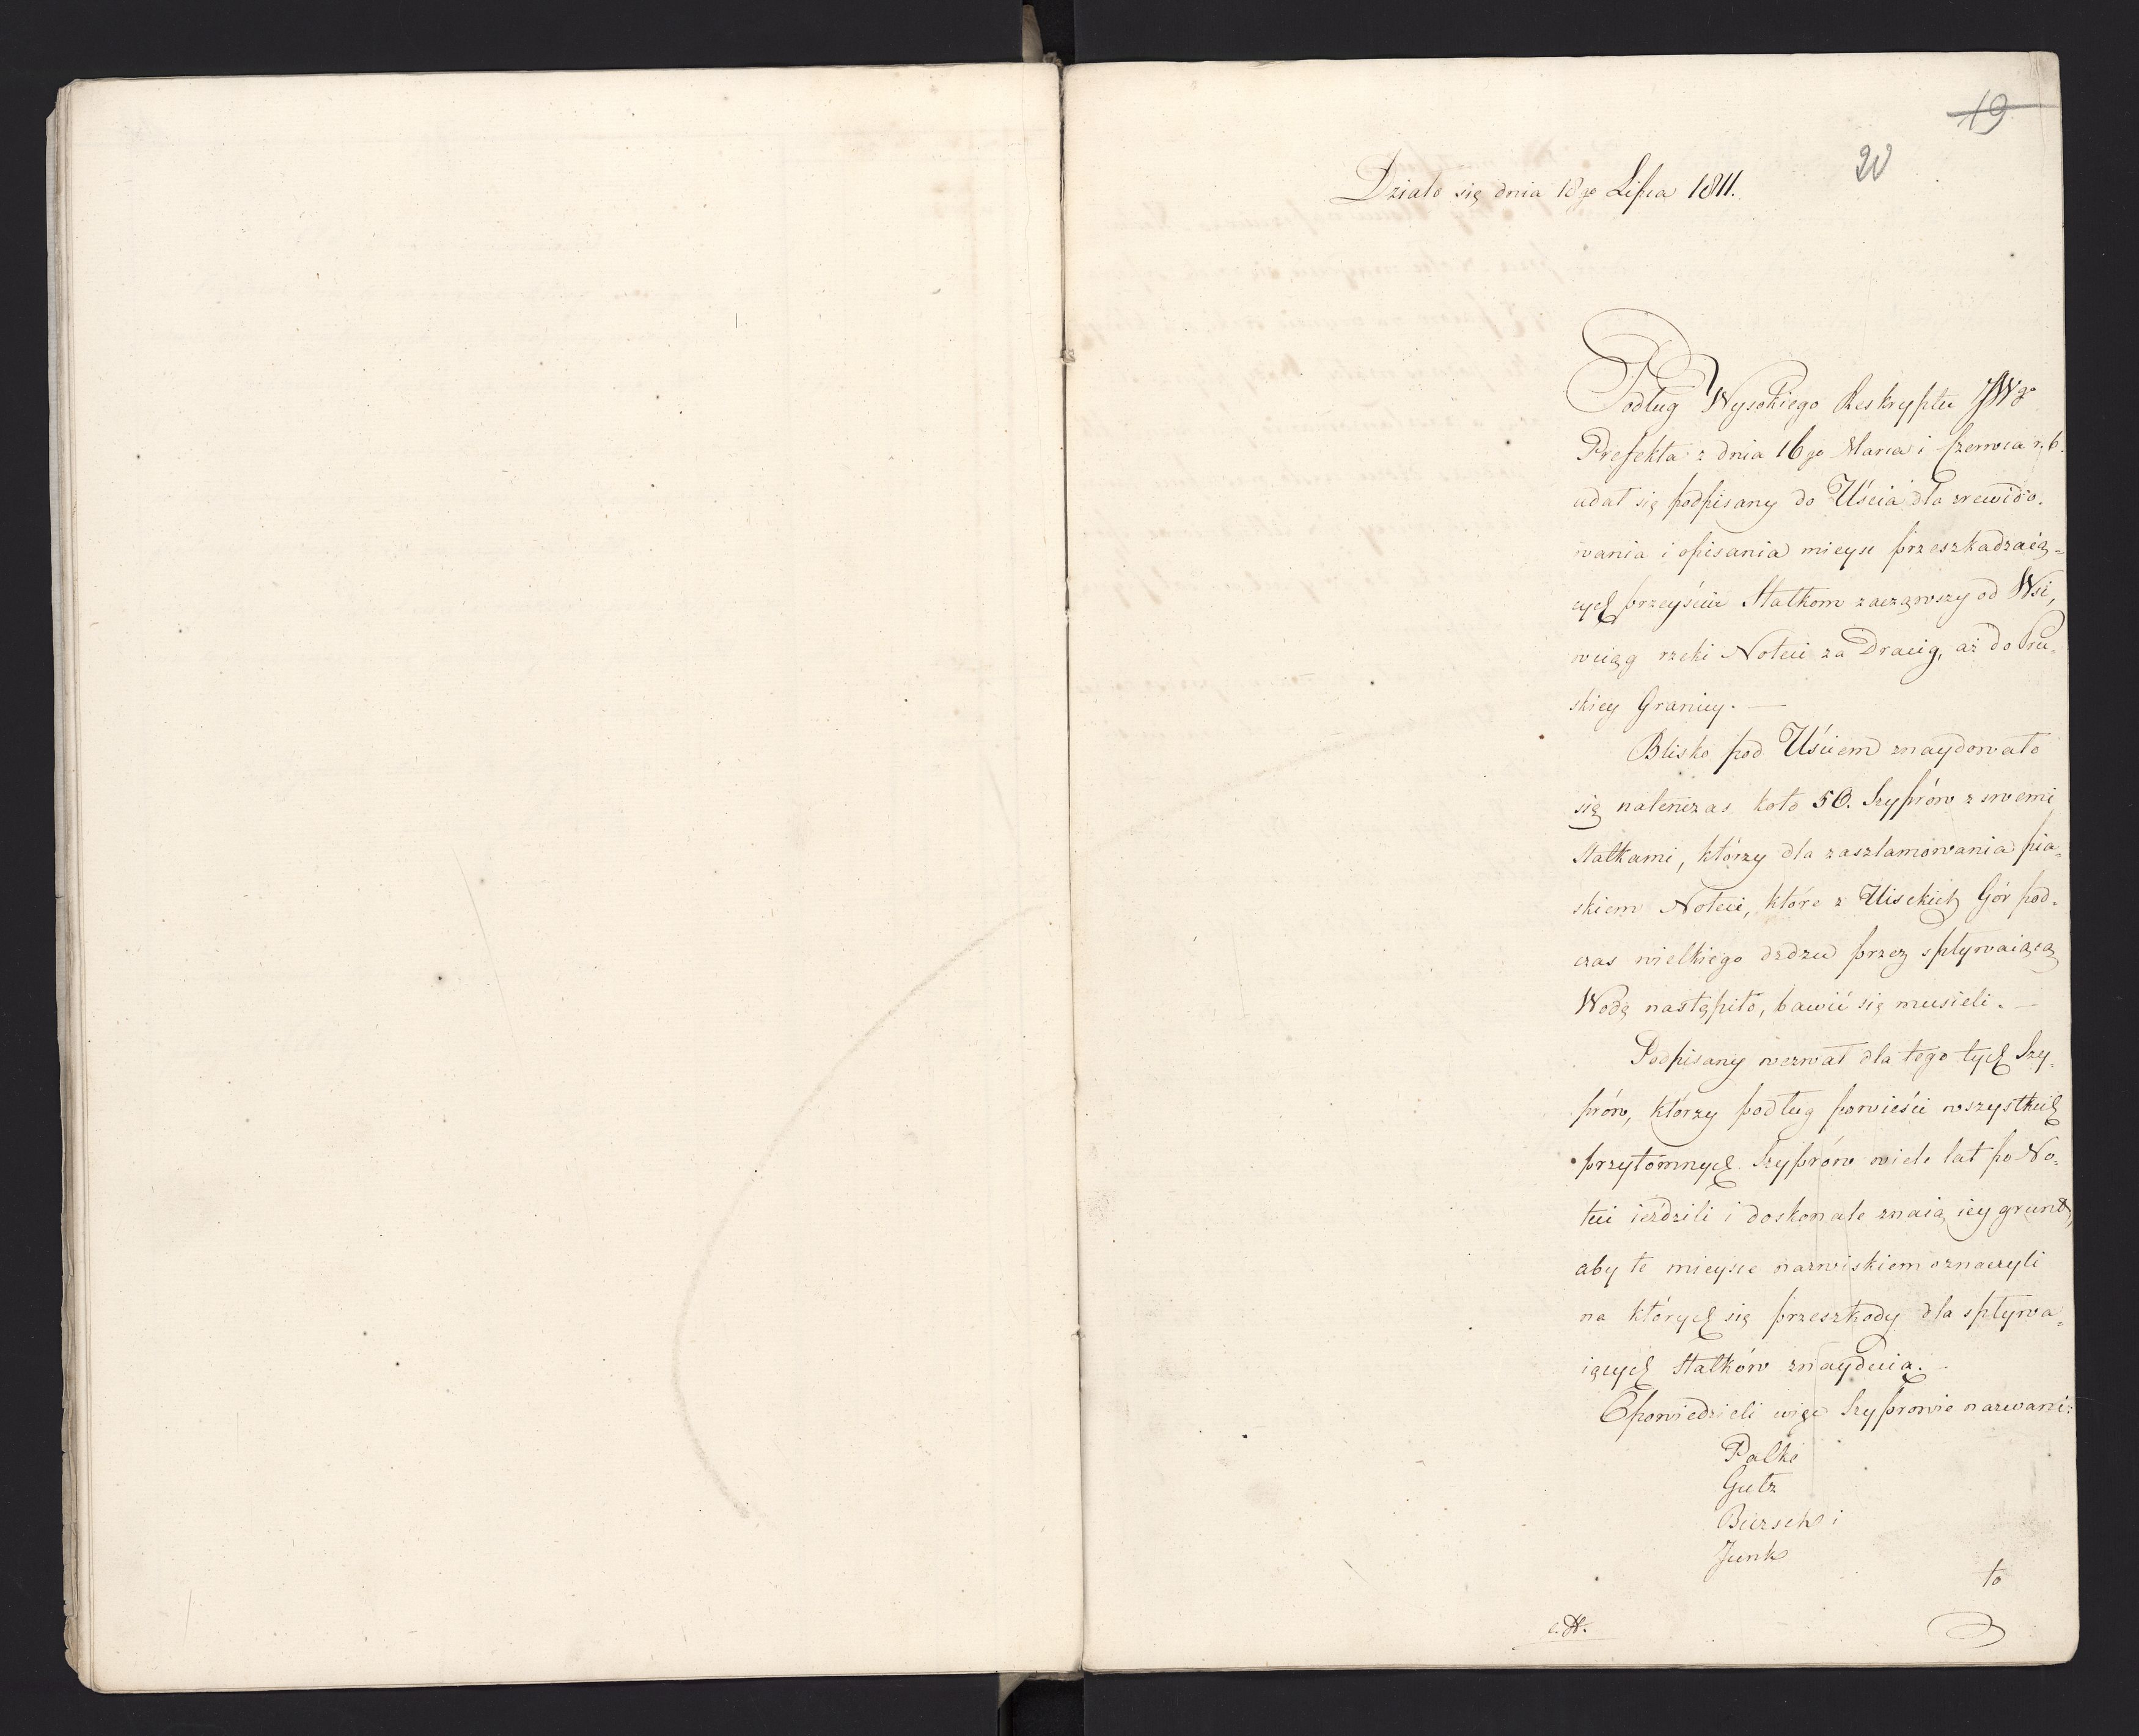 19
20
Działo się dnia 18go Lipca 1811.
Podług Wysokiego Reskryptu JWgo
Prefekta z dnia 16go Marca i Czerwca r. b.
udał się podpisany do Uścia dla zrewido-
wania i opisania mieysc przeszkadzaią-
cych przeyściu Statkom zacząwszy od Wsi,
wciąg rzeki Noteci za Dracig, aż do Pru-
skiey Granicy. —
Blisko pod Uściem znaydowało
się natenczas koło 50. Szyprów z swemi
Statkami, którzy dla zaszlamowania pia-
skiem Noteci, które z Uisckich Gór pod-
czas wielkiego dżdżu przez spływaiącą
Wodą nastąpiło, bawić się musieli. —
Podpisany wezwał dla tego tych Szy-
prów, którzy podług powieści wszystkich
przytomnych Szyprów wiele lat po No-
teci ieździli i doskonale znaią iey grunt,
aby te mieysce nazwiskiem oznaczyli
na których się przeszkody dla spływa-
iących Statków znayduią. -
Opowiedzieli więc Szyprowie nazwani:
Palke
Gutz
Bierschi i
Junk
to